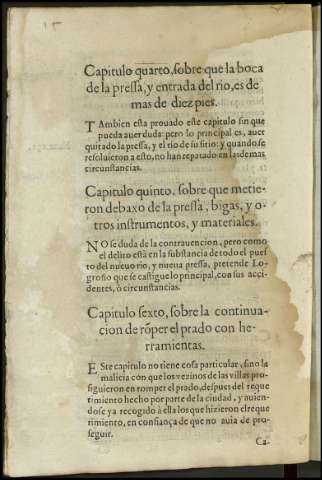 Capitulo quarto, sobre que la boca
de la pressa, y entrada del rio, es de
mas de diez pies.
TAmbien esta prouado este capitulo sin que
pueda auer duda: pero lo principal es, auer
quitado la pressa, y el rio de su sitio: y quando se
resoluieron a esto, no han reparado en las demas
circunstancias.
Capitulo quinto, sobre que metie-
ron debaxo de la pressa, bigas, y o-
tros instrumentos, y materiales.
NO se duda de la contrauencion, pero como
el delito està en la substancia de todo el puer
to del nueuo rio, y nueua pressa, pretende Lo-
groño que se castigue lo principal, con sus acci-
dentes, ò circunstancias.
Capitulo sexto, sobre la continua-
cion de rõper el prado con he-
rramientas.
ESte capitulo no tiene cosa particular, sino la
malicia con que los vezinos de las villas pro-
siguieron en romper el prado, despues del reque
rimiento hecho por parte de la ciudad, y auien-
dose ya recogido à ella los que hizieron el reque
rimiento, en confiança de que no auia de pro-
seguir.
Ca-